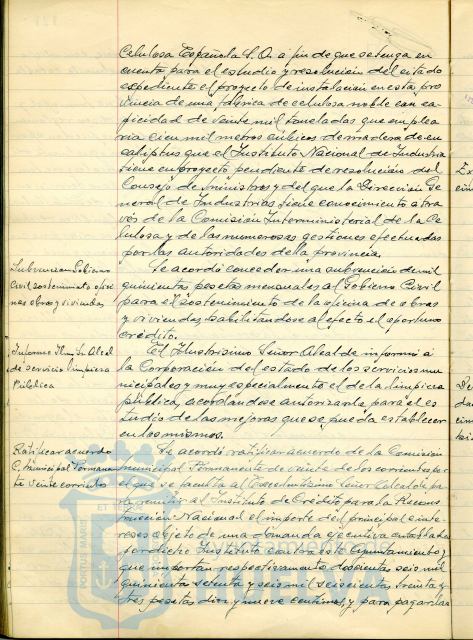 Celulosa Española S.A. a fin de que se tenga en
cuenta para el estudio y resolucion del citado
expediente el proyecto de instalacion en esta pro
vincia de una fábrica de celulosa noble con ca
pacidad de veinte mil toneladas que emplea
ria cien mil metros cúbicos de madera de eu
caliptus que el Instituto Nacional de Industria
tiene en proyecto pendiente de resolucion del
Consejo de Ministros y del que la Direccion Ge
neral de Industrias tiene conocimiento a tra
vés de la Comision Interministerial de la Ce
lulosa y de las numerosas gestiones efectuadas
por las autoridades de la provincia.
Subvencion Gobierno
Civil sostenimiento ofici
nas obras y viviendas
Se acordó conceder una subvencion de mil
quinientas pesetas mensuales al Gobierno Civil
para el sostenimiento de la oficina de obras
y viviendas, habilitandose al efecto el oportuno
crédito.
Informe Ilmo Sr. Alcal
de servicio limpieza
Pública
El Ilustrisimo Señor Alcalde informó a
la Corporacion del estado de los servicios mu
nicipales y muy especialmente el de la limpieza
pública, acordándose autorizarle para el es
tudio de las mejoras que se pueda establecer
en los mismos.
Ratificar acuerdo
C. Municipal Permanen
te veinte corriente
Se acordó ratificar acuerdo de la Comision
municipal Permanente de veinte de los corrientes por
el que se faculta al Excelentisimo Señor Alcalde pa
ra remitir al Instituto de Crédito para la Recons
truccion Nacional el importe del principal e inte
reses objeto de una demanda ejecutiva entablada
por dicho Instituto contra este Ayuntamiento y
que importan respectivamente doscientas seis mil
quinientas setenta y seis mil seiscientas treinta y
tres pesetas diez y nueve centimos, y para pagar las